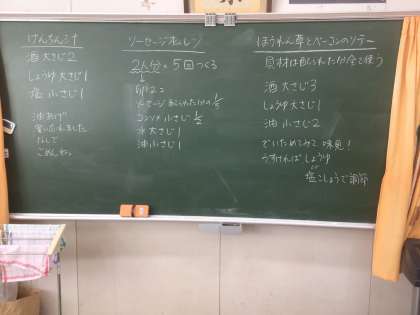 けんちん汁
酒 大さじ2
しょうゆ 大さじ1
塩 小さじ1
油あげ
買い忘れました
なしで
ごめんね。
ソーセージオムレツ
2人分×5回つくる
↓
卵2コ
ソーセージ 配られた分の1/5
コンソメ 小さじ1/2
水 大さじ1
油 小さじ1
ほうれん草とベーコンのソテー
具材は配られた分全て使う
酒 大さじ3
しょうゆ 大さじ1
油 小さじ2
でいためてみて 味見!
うすければ しょうゆ
塩こしょうで調節